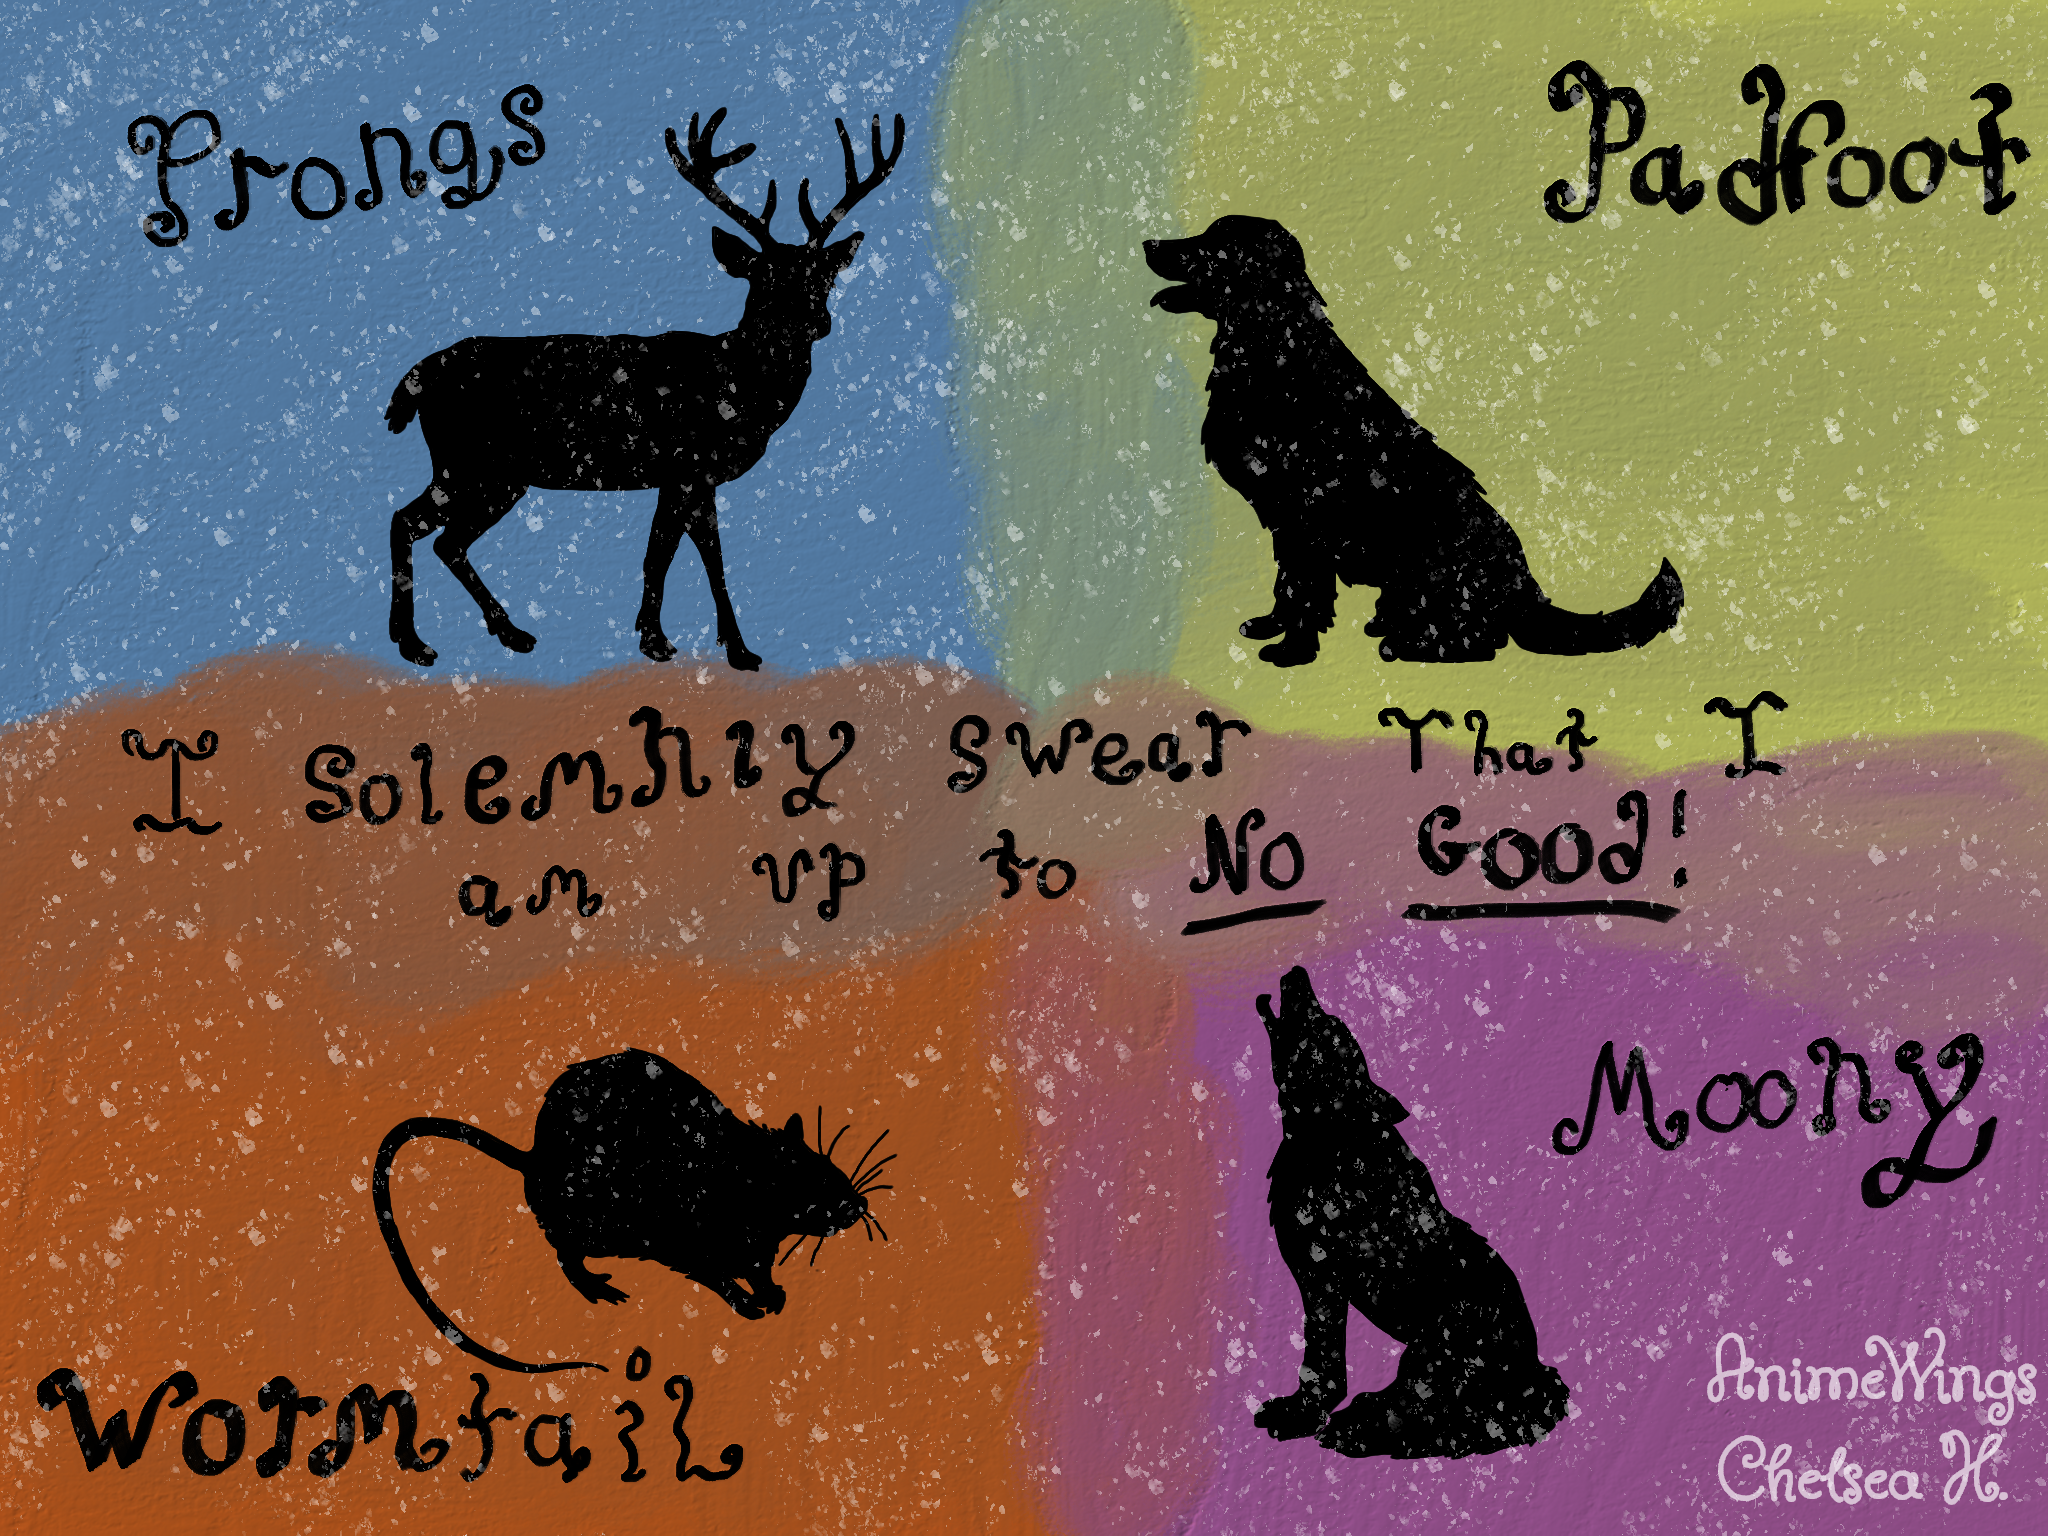 Prongs
Padfoot
I Solemnly Swear That I
am up to No Good!
Moony
Wormtail
AnimeWings
Chelsea H.